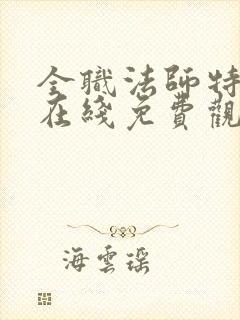 全職法師特
在綫免費觀
海雲瑶